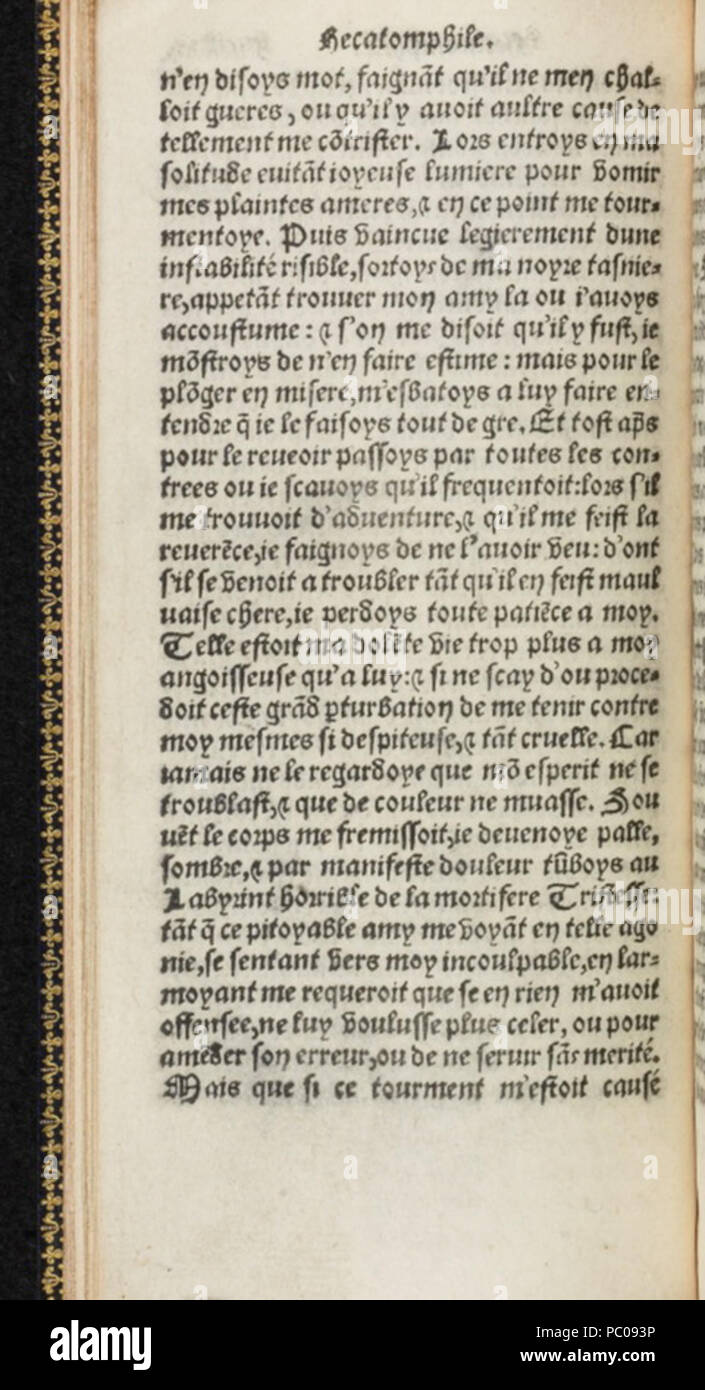 Hecatomphile.
n'en disoys mot, faignãt qu'il ne men chal-
loit gueres, ou qu'il y auoit aultre cause de
tellement me cõtrister. Lors entroys en ma
solitude euitãt ioyeuse lumiere pour vomir
mes plaintes ameres,⁊ en ce point me tour-
mentoye. Puis vaincue legierement dune
instabilité risible,sortoys de ma noyre tasnie-
re,appetãt trouuer mon amy la ou i'auoys
accoustume: ⁊ s'on me disoit qu'il y fust,ie
mõstroys de n'en faire estime: mais pour le
plõger en misere,m'esbatoys a luy faire en-
tendre q̃ ie le faisoys tout de gre. Et tost ap̃s
pour le reueoir passoys par toutes les con-
trees ou ie scauoys qu'il frequentoit:lors s'il
me trouuoit d'aduenture,⁊ qu'il me feist la
reuerẽce,ie faignoys de ne l'auoir veu: d'ont
s'il se venoit a troubler tãt qu'il en feist maul
uaise chere,ie perdoys toute patiẽce a moy.
Telle estoit ma dolẽte vie trop plus a moy
angoisseuse qu'a luy:⁊ si ne scay d'ou proce-
doit ceste grãd ꝑturbation de me tenir contre
moy mesmes si despiteuse,⁊ tãt cruelle. Car
iamais ne le regardoye que mõ esperit ne se
troublast,⁊ que de couleur ne muasse. Sou
uẽt le corps me fremissoit,ie deuenoye palle,
sombre,⁊ par manifeste douleur tũboys au
Labyrint horrible de la mortifere Tristesse:
tãt q̃ ce pitoyable amy me voyãt en telle ago
nie,se sentant vers moy incoulpable,en lar-
moyant me requeroit que se en rien m'auoit
offensee,ne luy voulusse plus celer, ou pour
amẽder son erreur,ou de ne seruir sãs merité.
Mais que si ce tourment m'estoit causé
alamy
alamy
Image ID: PC093P
www.alamy.com